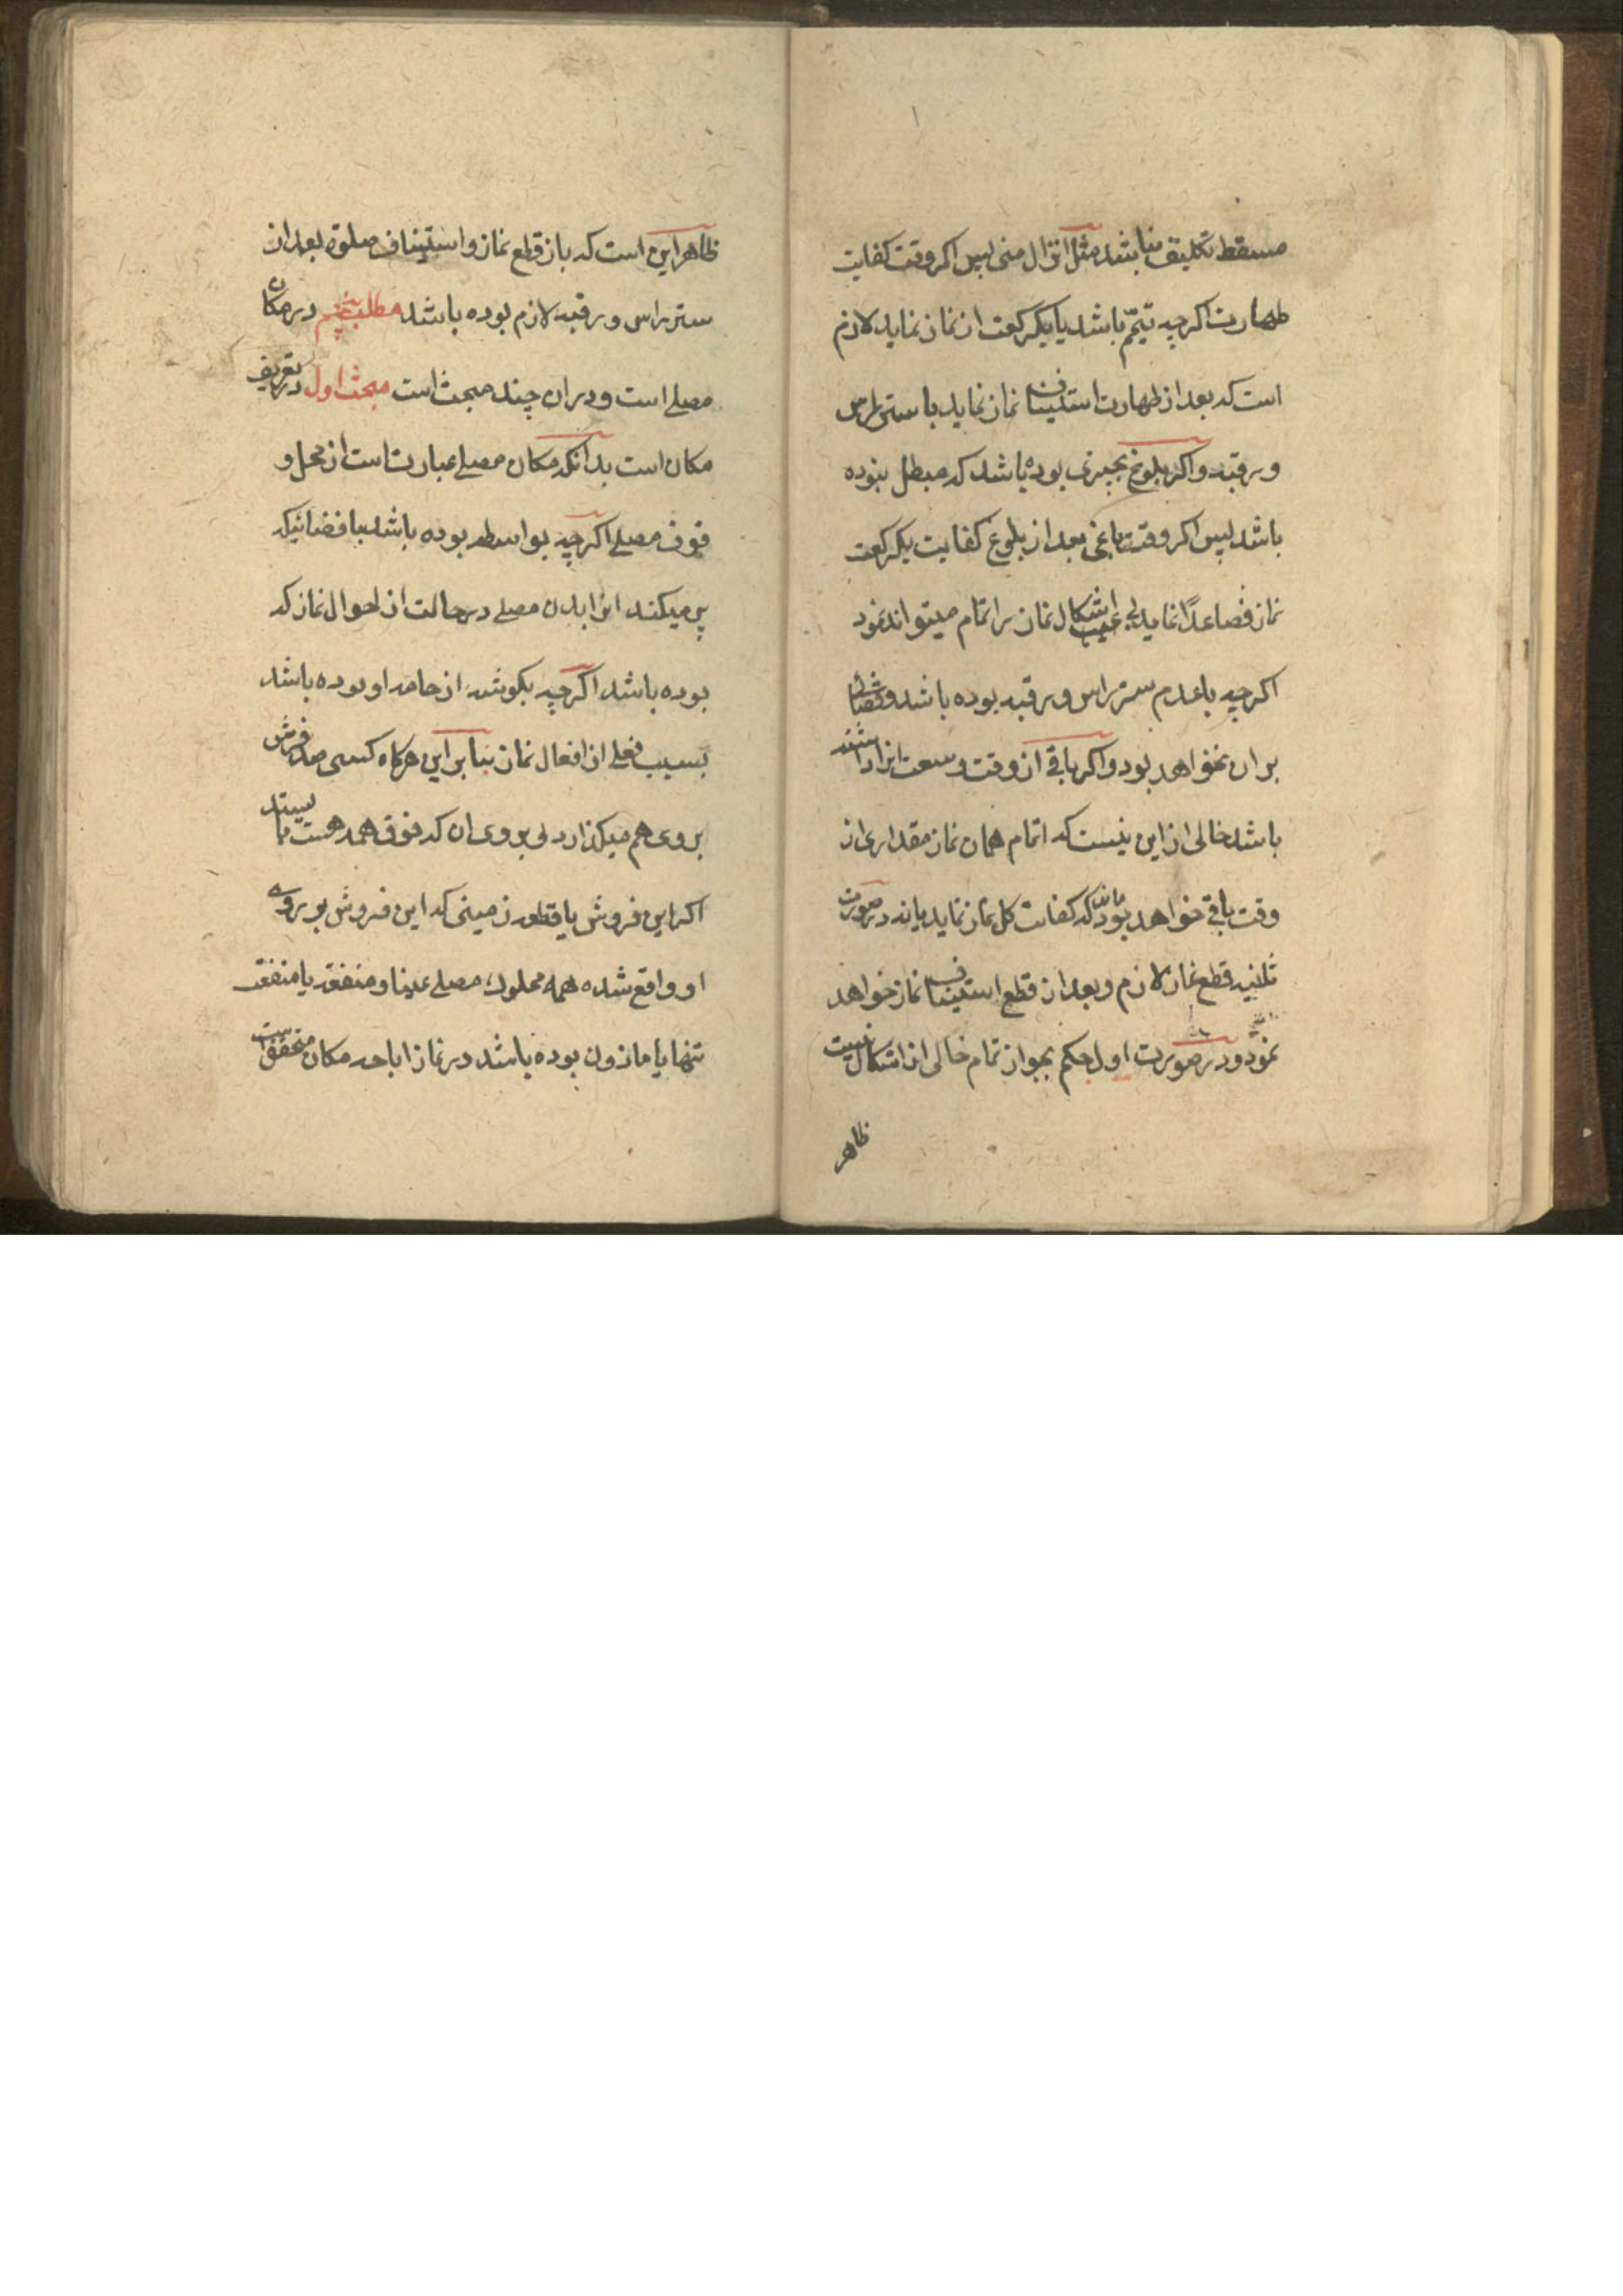 مسقط تکلیف نباشد مثل انزال منی پس اکر وقت کفایت
طهارت اکرچه تیمّم باشد با یکرکعت از نماز نماید لازم
است که بعد از طهارت استیناف نماز نماید با ستر راس
و رقبه واکر بلوغ بچیزی بوده باشد که مبطل نبوده
باشد پس اکر وقت باقی بعد از بلوغ کفایت یکرکعت
نماز فصاعدًا نماید بی اشکال نماز را تمام میتواند نمود
اکرچه باعدم ستر راس و رقبه بوده باشد و قضائی
بران نخواهد بود واکر باقی از وقت وسعت انرا داشته
باشد خالی از این نیست که اتمام همان نماز مقداری از
وقت باقی خواهد بود که کفایت کل نماز نماید یا نه در صورت
ثانیه قطع نماز لازم و بعد از قطع استیناف نماز خواهد
نمود و در صورت اول حکم بجواز تمام خالی از اشکال نیست
ظاهر
ظاهر این است که باز قطع نماز و استیناف صلوة بعد از
ستر راس و رقبه لازم بوده باشد مطلب پنجم در مکان
مصلی است و در ان چند مبحث است مبحث اول در تعریف
مکان است بدانکه مکان مصلی عبارتست از محل و
قوف مصلی اکرچه بواسطه بوده باشد با فضائیکه
پر میکند انرا بدن مصلی در حالت از احوال نماز که
بوده باشد اکرچه بکوشه از جامه او بوده باشد
بسبب فعلی از افعال نماز بنابراین هرکاه کسی صد فرش
بروی هم میکذارد بی بروی ان که فوق همه هست بایستد
اکر این فروش یا قطعه زمینی که این فروش بر روی
او واقع شده همه مملوک مصلی عینا و منفعة یا منفعة
تنها یا ماذون بوده باشد در نماز اباحه مکان متحقق است